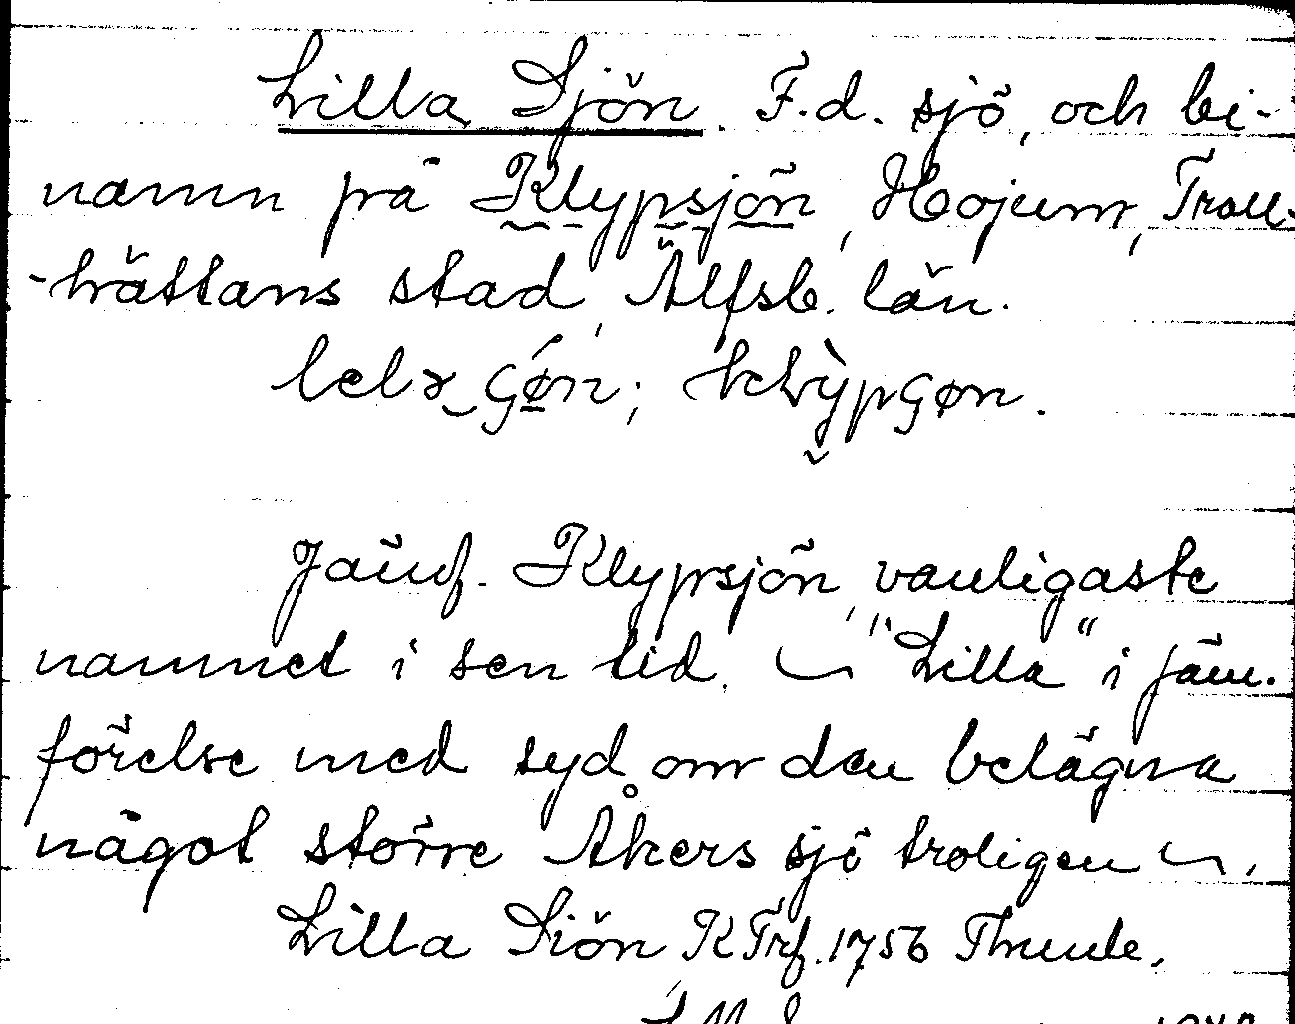 Lilla Sjön. F.d. sjö, och bi-
namn på Klypsjön, Hojum, Troll-
-hättans stad, Älfsb. län.
Jämf. Klypsjön, vanligaste
namnet i sen tid. "Lilla" i jäm-
förelse med syd om den belägna
något större Åkers sjö troligen
Lilla Siön, KTrf. 1756 Thunde.